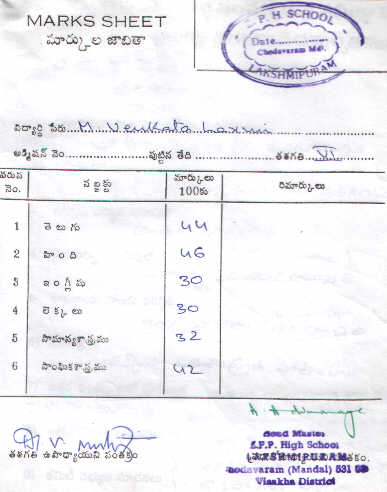 MARKS SHEET
మార్కుల జాబితా
Z.P.H. SCHOOL
Date
Chodavaram Mdl.
LAKSHMIPURAM
విద్యార్థి పేరు M Venkata Laxmi
అడ్మిషన్ నెం. పుట్టిన తేది తరగతి VI
వరుస నెం. సబ్జక్టు మార్కులు 100కు రిమార్కులు
1 తెలుగు 44
2 హింది 46
3 ఇంగ్లీషు 30
4 లెక్కలు 30
5 సామాన్యశాస్త్రము 32
6 సాంఘికశాస్త్రము 42
తరగతి ఉపాధ్యాయుని సంతకం
Head Master
Z.P.P. High School
LAKSHMIPURAM
సంతకం.
Chodavaram (Mandal) 531
Visakha District